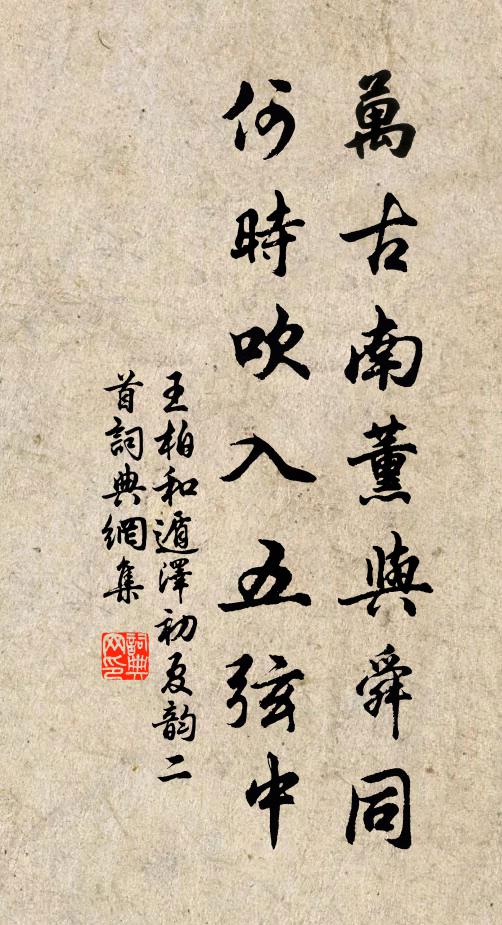 萬古南薰與舜同
何時吹入五弦中
王柏和遁澤初夏韵二
首詞典網集
詞典网印